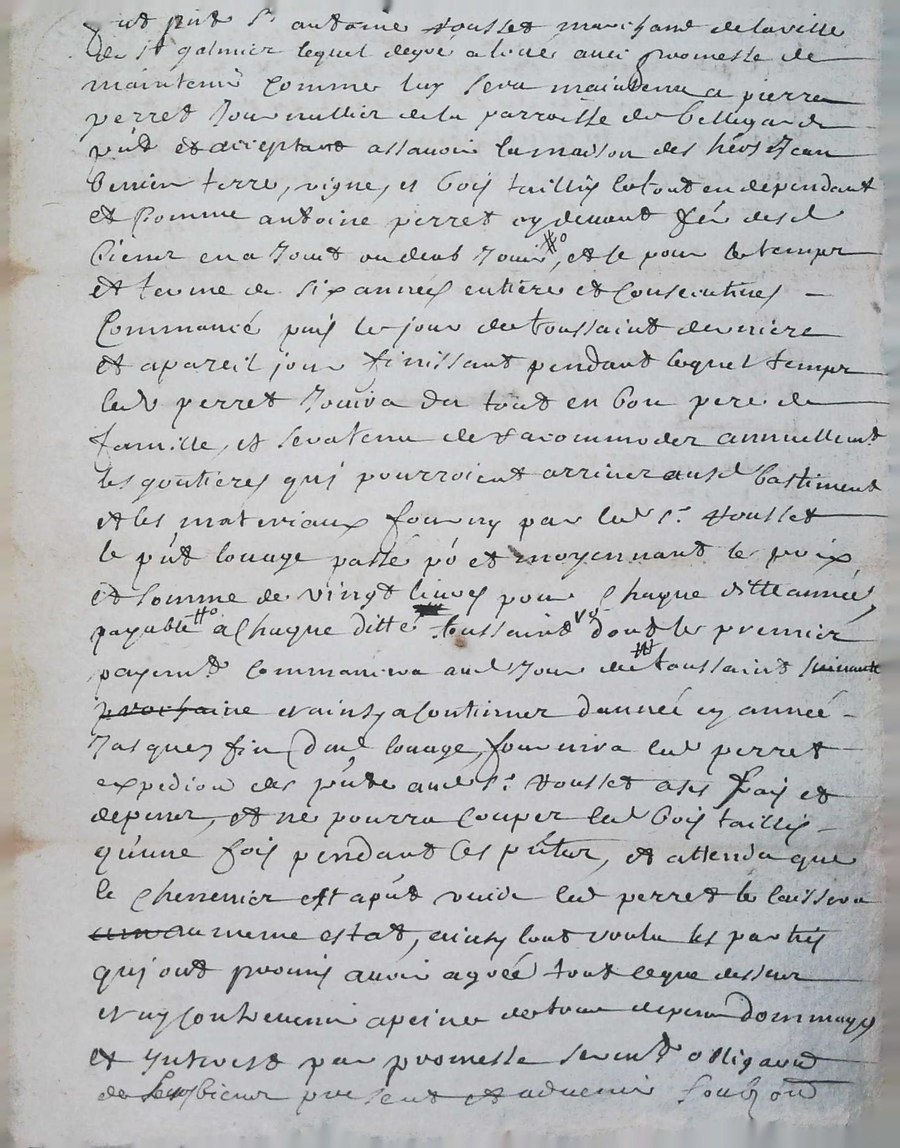 fut pnt Sr antoine Housset marchand de la ville
de st galmier lequel de gre a loüe avec promesse de
maintenir comme luy sera maintenu a pierre
perret Journallier de la parroisse de bellegarde
pnt et acceptant assavoir la maison des hérs Jean
terre, vigne, et bois taillis le tout en dependant
et comme antoine perret cy devant fér desd
biens en a Jouit ou deub Jouir #o, et ce pour le temps
et terme de six années entière et consecutives –
Commancé puis le jour de toussaint derniere
et a pareil jour finissant pendant lequel temps
led perret Jouira du tout en bon pere de
famille, et sera tenu de racommoder annuellemt
les goutieres qui pourroient arriver ausd bastiment
et les materiaux fourny par led sr Housset
le pnt louage passé po et moyennant le prix
et somme de vingt livres pour chaque ditte année
payable #o a chaque ditte toussaint vo dont le premier
payemt commancera aud Jour de # toussaint suivante
prochaine et ainsy a continuer dannée en année –
Jusques fin dud louage, fournira led perret
expedion des pnte aud sr Housset a ses frais et
depens, et ne pourra couper led bois taillis –
qu'une fois pendant les pntes, et attendu que
le chenevier est apnt vuide led perret le laissera
au meme estat, ainsy lont voulu les partis
qui ont promis avoir agréé tout ce que dessus
et ny contrevenir a peine de tous depens dommages
et Interest par promesse sermt obligaon
de leurs biens present et advenir soubzon